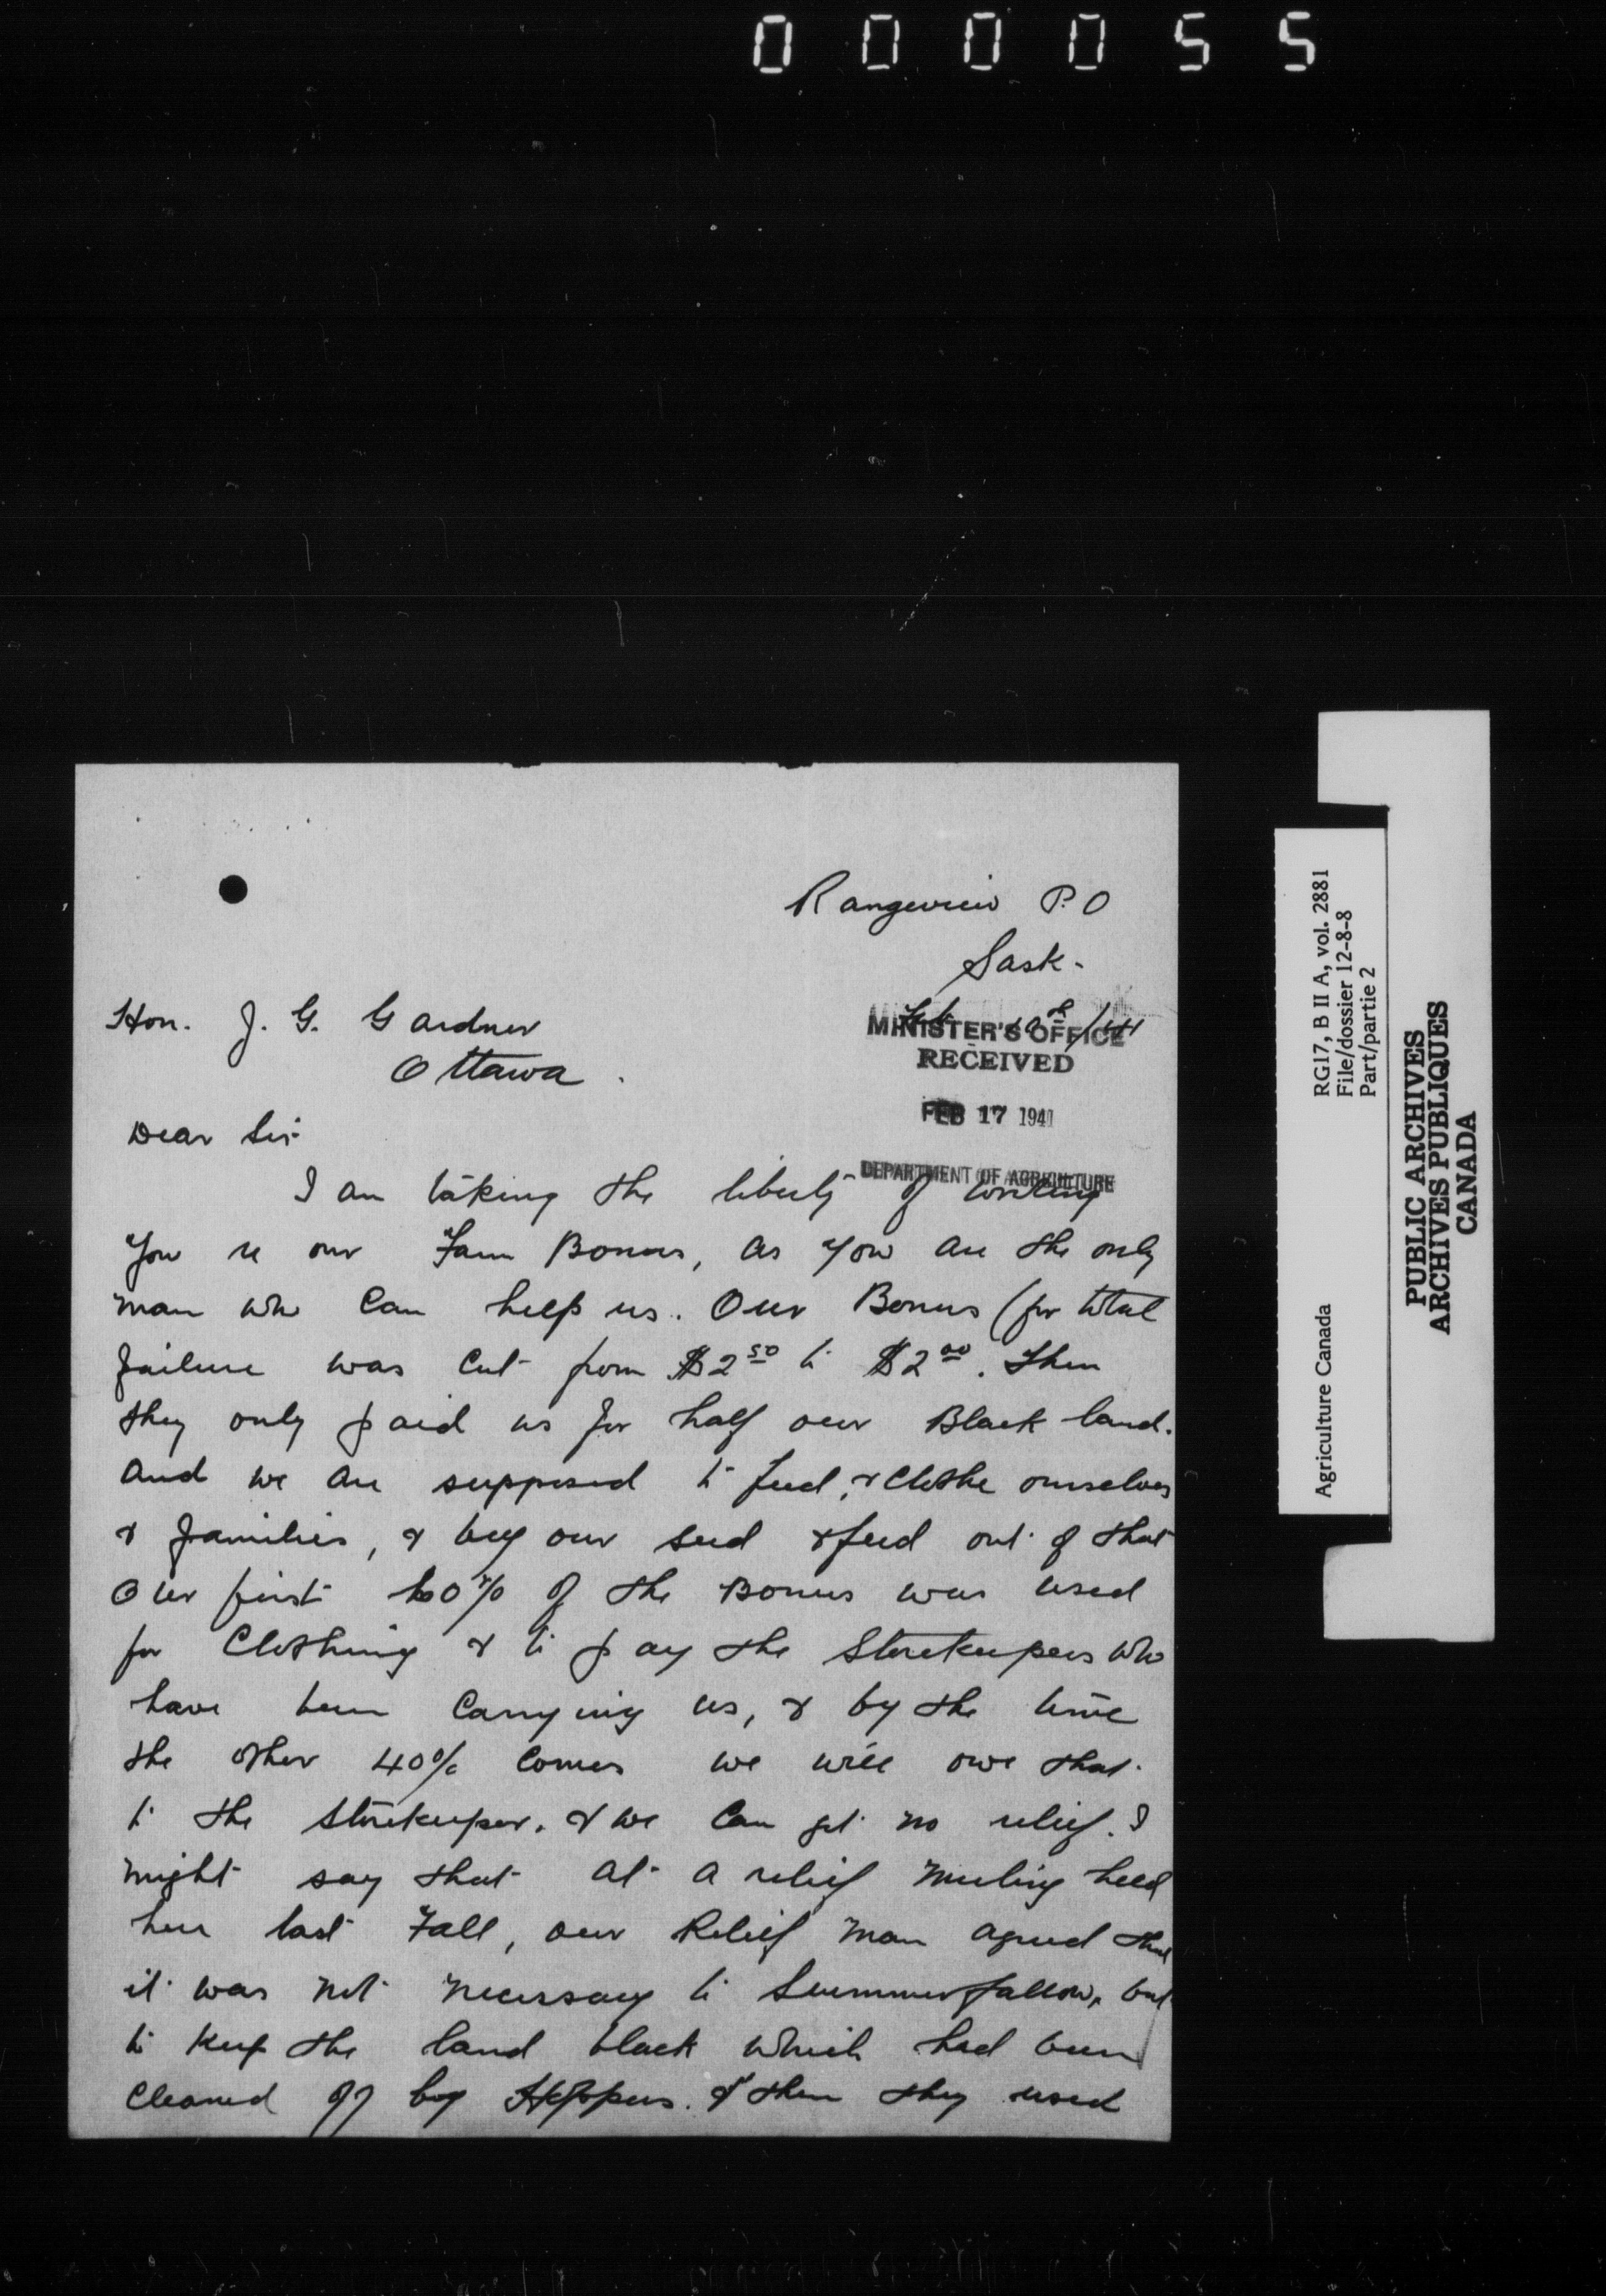 000055
Rangeview P.O
Sask-
Hon. J. G. Gardner
Feb /41
Ottawa.
MINISTER'S OFFICE
RECEIVED
FEB 17 1941
DEPARTMENT OF AGRICULTURE
Dear Sir
I am taking the liberty of writing
you re our Farm Bonus, as you are the only
man who can help us. Our Bonus (for total
failure was cut from $2 50 to $2 00. Then
they only paid us for half our Black land.
and we are supposed to feed, & clothe ourselves
& families, & buy our seed & feed out of that
Our first 60% of the Bonus was used
for Clothing & to pay the Storekeepers who
have been carrying us, & by the time
the other 40% comes we will owe that.
to the storekeeper. & we can get no relief. I
might say that at a relief meeting held
here last Fall, our Relief man agreed that
it was not necessary to Summerfallow, but
to keep the land black which had been
cleaned off by Hoppers. & then they used
RG17, B II A, vol. 2881
File/dossier 12-8-8
Part/partie 2
Agriculture Canada
PUBLIC ARCHIVES
ARCHIVES PUBLIQUES
CANADA